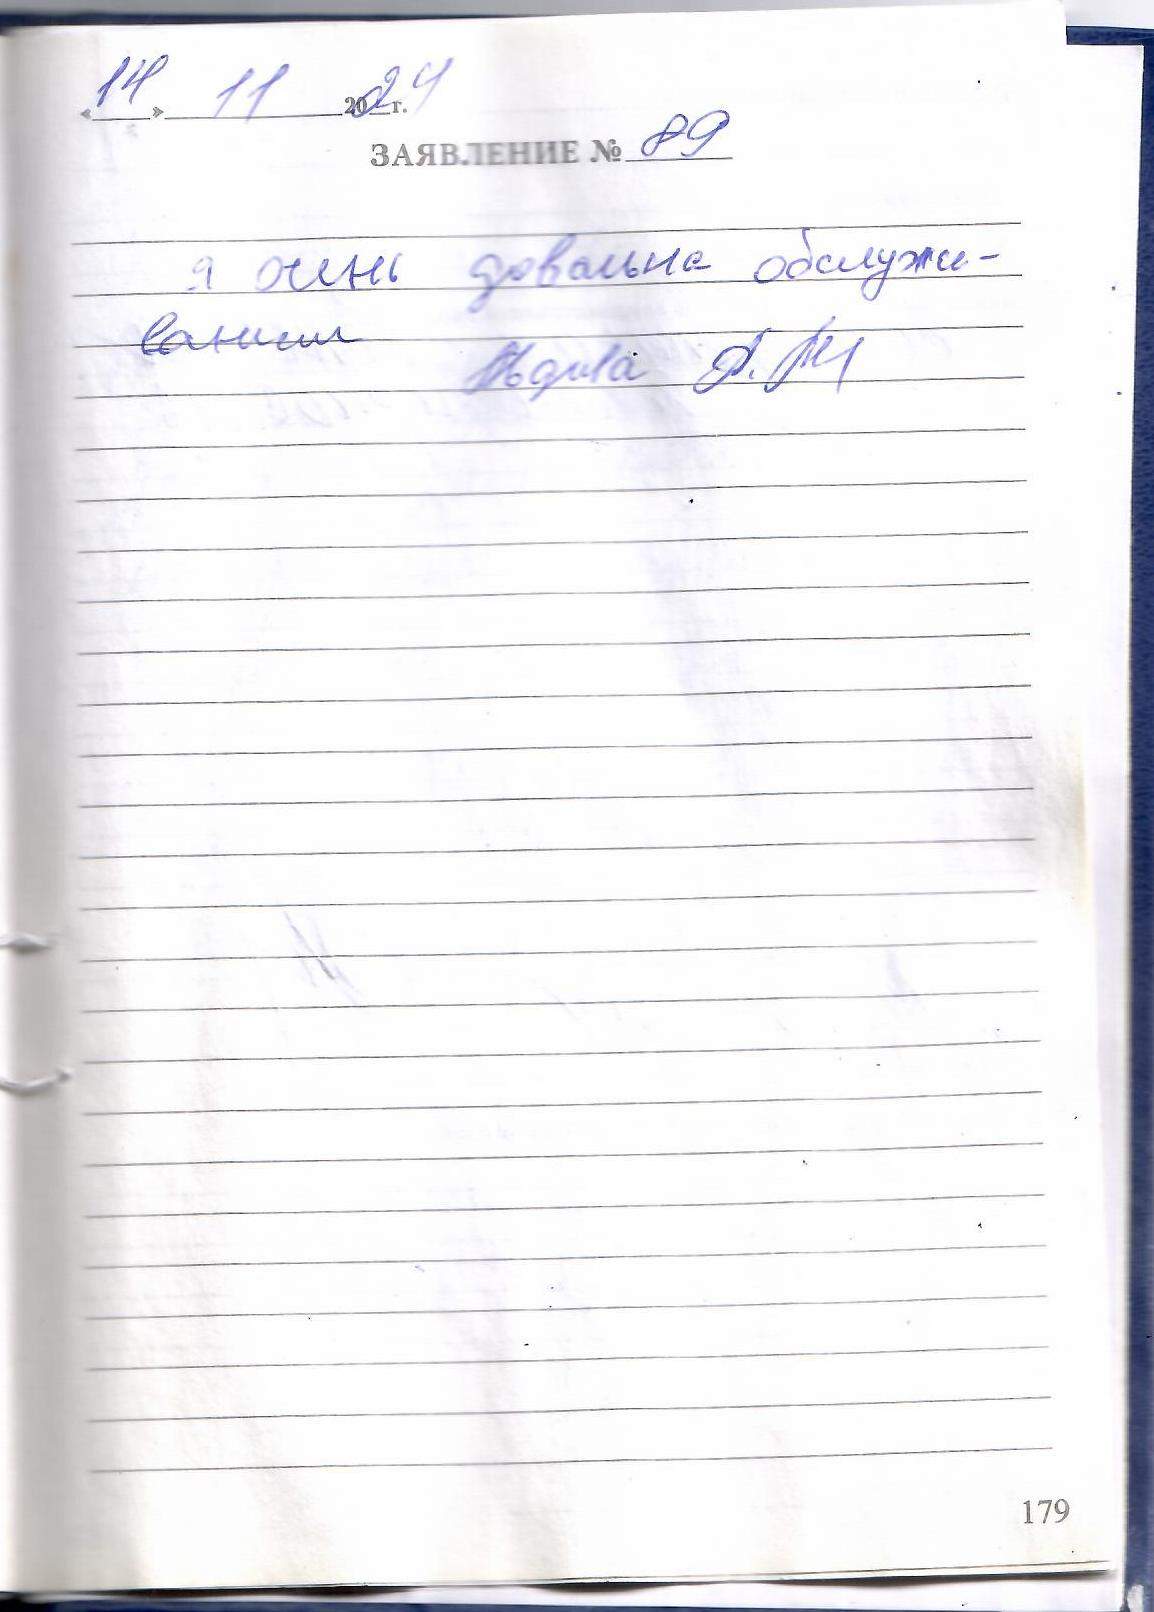 «14» 11 2024 г.
ЗАЯВЛЕНИЕ № 89
я очень довольна обслужи-
ванием
А.М
179